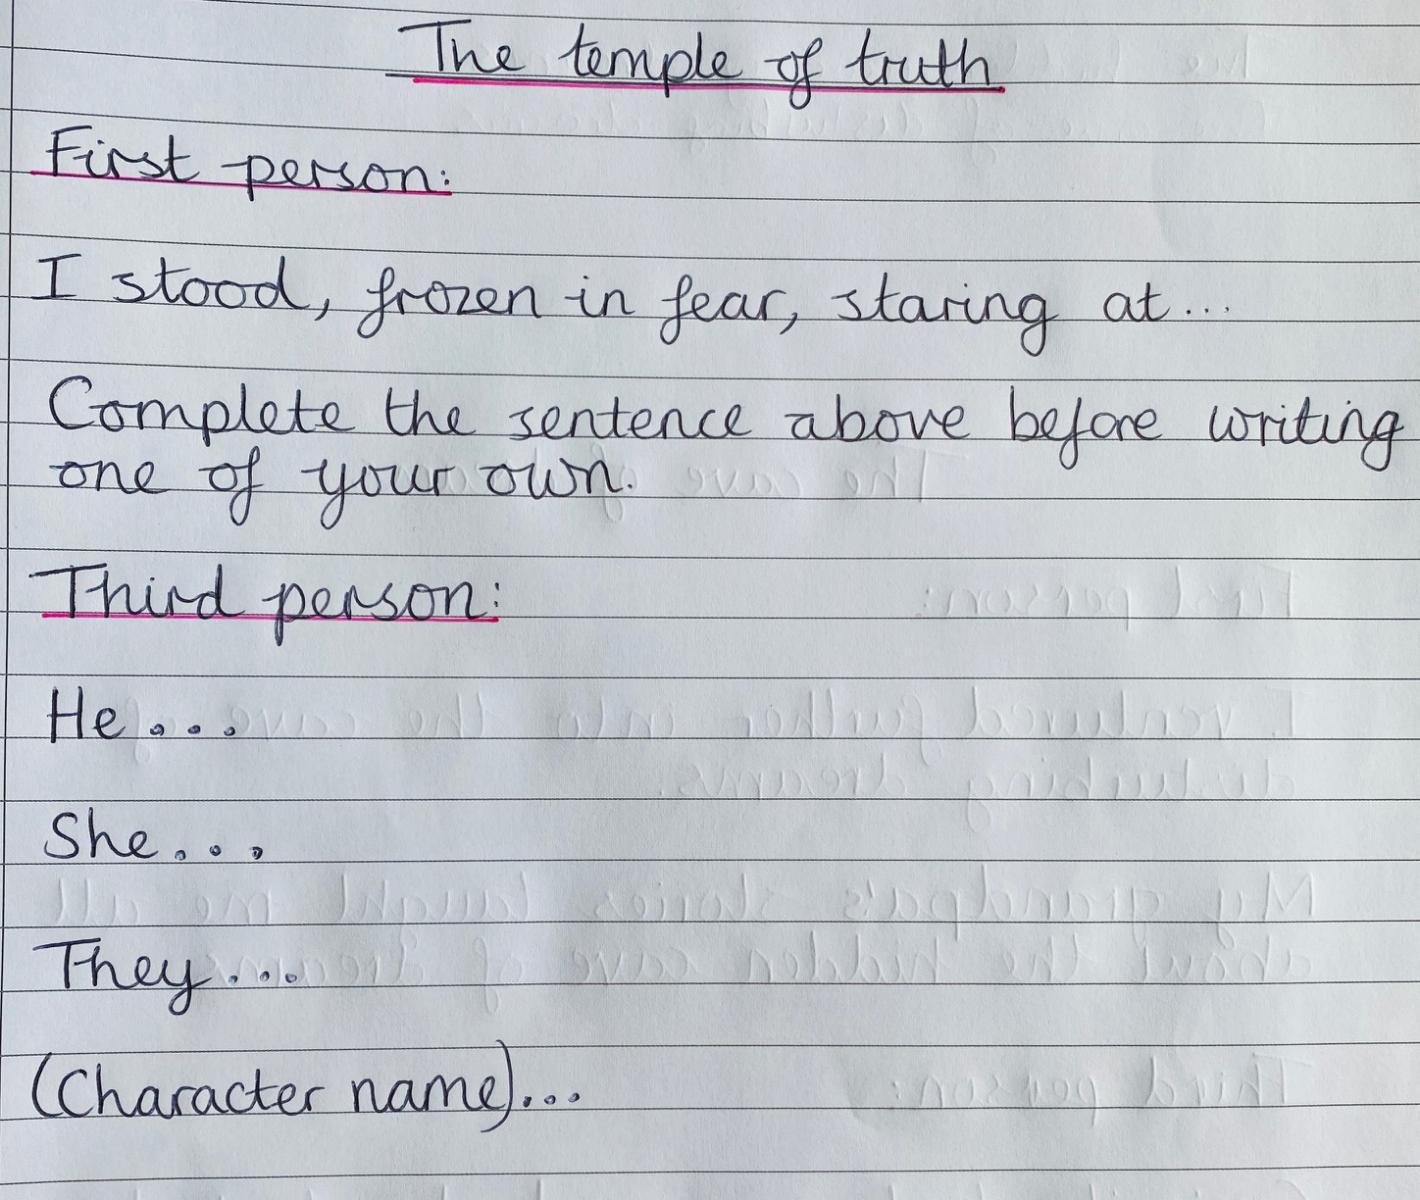 The temple of truth
First person:
I stood, frozen in fear, staring at...
Complete the sentence above before writing
one of your own.
Third person:
He...
She...
They...
(Character name)...